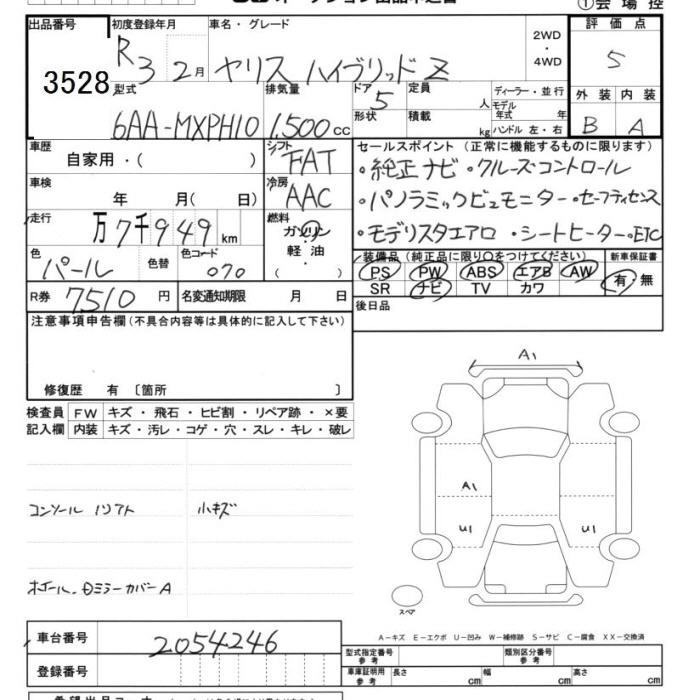 ①会場控
出品番号 初度登録年月 車名・グレード 2WD・4WD 評価点
3528 R3 2月 ヤリス ハイブリッド Z 5
型式 排気量 ドア 定員 ディーラー・並行 外装 内装
6AA-MXPH10 1,500cc 5 人 モデル年式 年 B A
形状 積載 kg ハンドル 左・右
車歴 シフト セールスポイント (正常に機能するものに限ります)
自家用・( ) FAT ・純正ナビ・クルーズコントロール
車検 冷房 ・パノラミックビュモニター・セーフティセンス
年 月( 日) AAC
走行 燃料 ・モデリスタエアロ・シートヒーター・ETC
万7千949km ガソリン
軽油
( )
色 色替 色コード 装備品 (純正品に限り○をつけてください) 新車保証書
パール 070 PS PW ABS エアB AW 有・無
SR ナビ TV カワ
R券 7510円 名変通知期限 月 日 後日品
注意事項申告欄(不具合内容等は具体的に記入して下さい)
修復歴 有 〔箇所 〕
検査員 FW キズ・飛石・ヒビ割・リペア跡・×要
記入欄 内装 キズ・汚レ・コゲ・穴・スレ・キレ・破レ
A1
A1
コンソール 小キズ
U1 U1
ミラーカバーA
スペア
A−キズ E−エクボ U−凹み W−補修跡 S−サビ C−腐食 XX−交換済
車台番号 2054246
型式指定番号 参考 類別区分番号 参考
登録番号
車庫証明用 参考 長さ cm 幅 cm 高さ cm